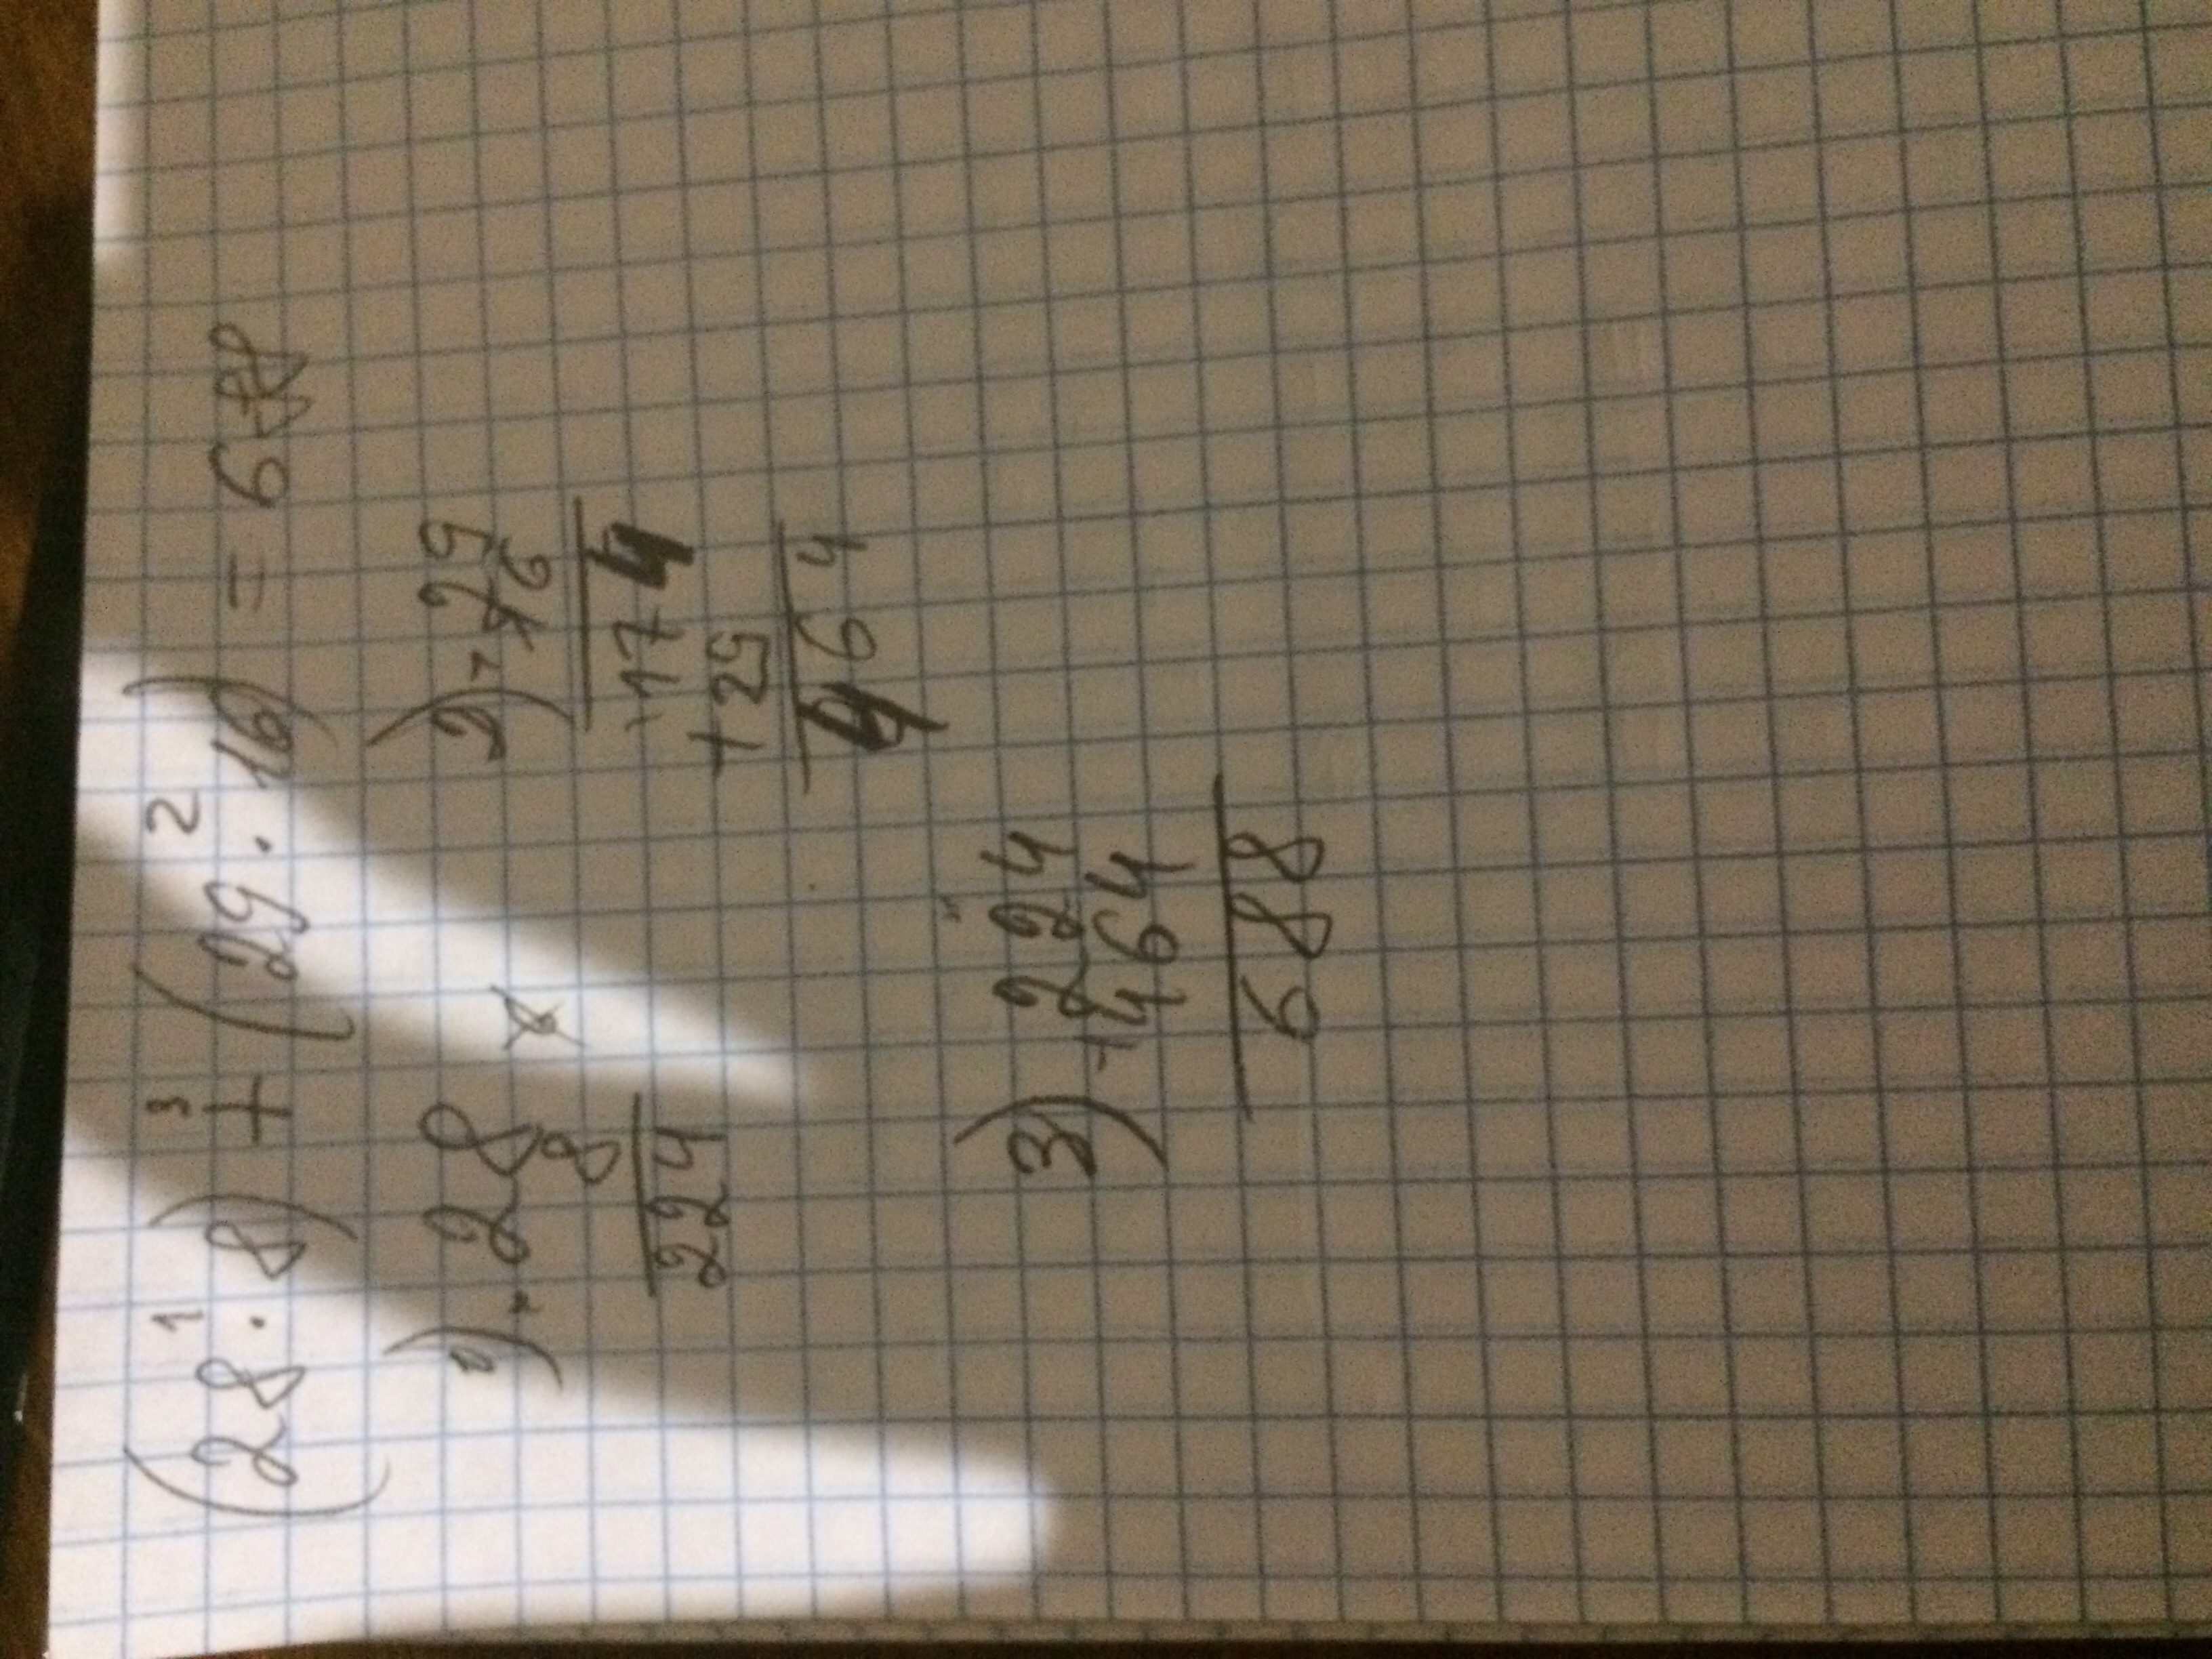 1 3 2
(28 · 8) + (29 · 16) = 688
1) × 28
8
224
2) × 29
16
174
+ 29
464
3) 224
+ 464
688